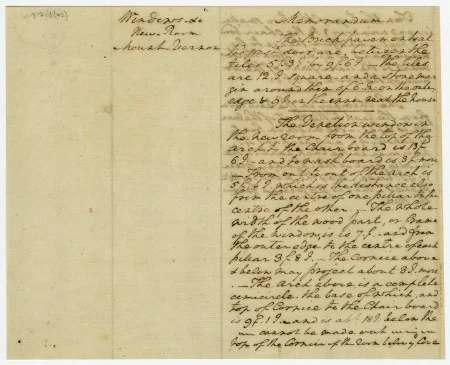 Windows &c
New Room
Mount Vernon
Memorandum
The Brick pavement at
West door, are, between the
tiles 5f. 9I. or 9f. 6I — The tiles
are 12.I. square — and a stone mar
gin around them of 6 In on the outer
edge & 9 on the inner next the house
The Venetian window in
the new room from the top of the
arch to the Chair board is 13f
6I — and to wash board is 3f. more
— From out to out of the arch is
5f. 6I which is the distance also
from the centre of one pillar to the
centre of the other. — The whole
width of the wood part, or frame
of the window, is is 7f. — and from
the outer edge to the centre of each
pillar 3f. 8I. — The Cornice above
& below may project about 3I. more
. — The arch above is a complete
semicircle the base of which, and
top of Cornice to the Chair board
is 9f. 1I — and is abt. 18I below the
cannot be made out
top of the Cornice of the room below